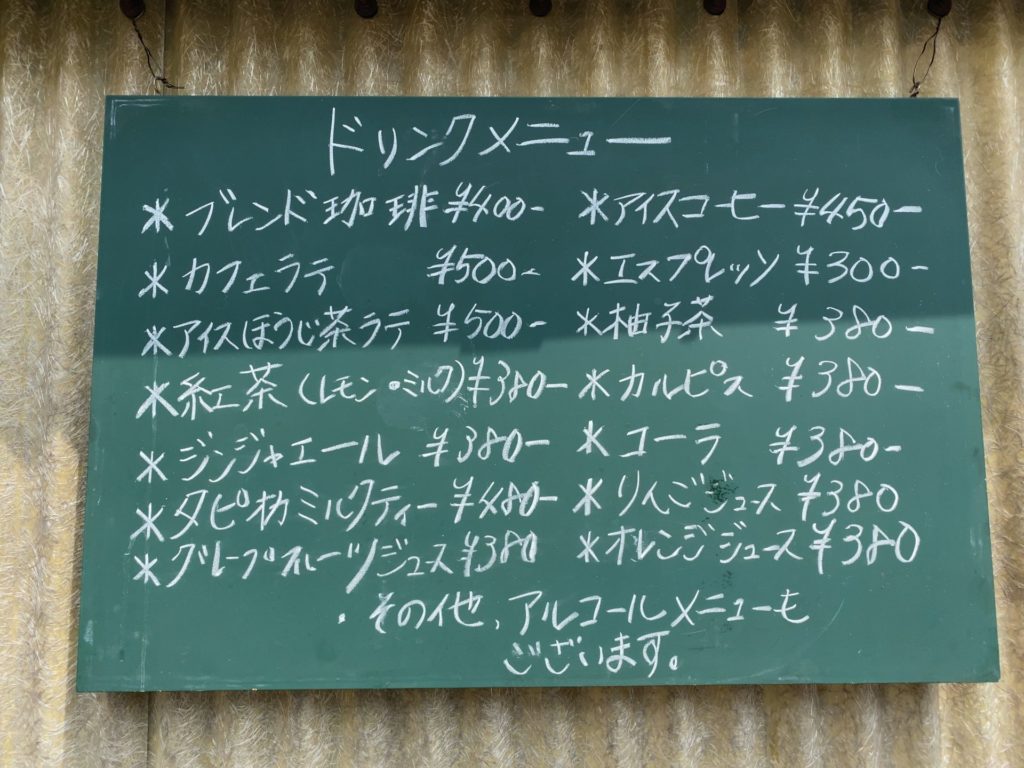 ドリンクメニュー
*ブレンド珈琲 ¥400- *アイスコーヒー ¥450-
*カフェラテ ¥500- *エスプレッソ ¥300-
*アイスほうじ茶ラテ ¥500- *柚子茶 ¥380-
*紅茶(レモン・ミルク)¥380- *カルピス ¥380-
*ジンジャエール ¥380- *コーラ ¥380-
*タピオカミルクティー ¥480- *りんごジュース ¥380
*グレープフルーツジュース ¥380 *オレンジジュース ¥380
・その他、アルコールメニューも
ございます。